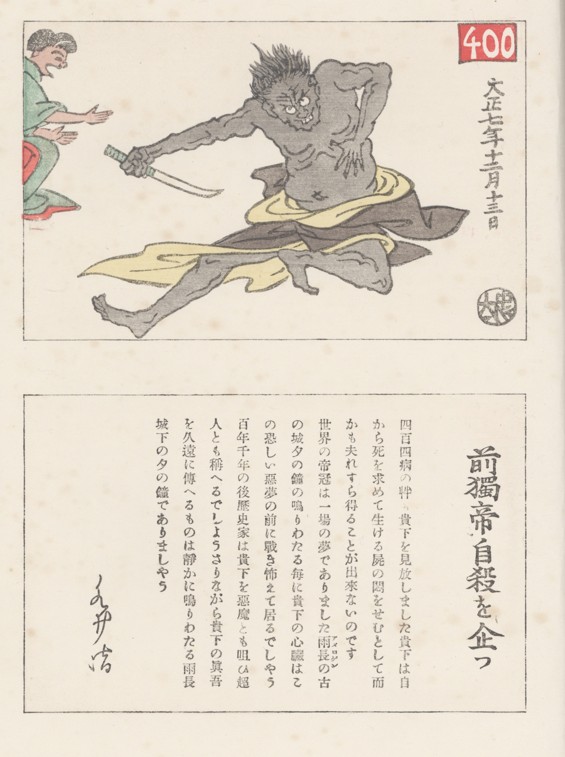 400
大正七年十二月十三日
前獨帝自殺を企つ
四百四病の神も貴下を見放しました貴下は自
から死を求めて生ける屍の悶をせむとして而
かも夫れすら得ることが出来ないのです
世界の帝冠は一場の夢でありました雨長の古
の城夕の鐘の鳴りわたる毎に貴下の心臓はこ
の恐しい惡夢の前に戰き怖えて居るでしやう
百年千年の後歴史家は貴下を惡魔とも咀ひ超
人とも稱へるでしようさりながら貴下の眞吾
を久遠に傳へるものは靜かに鳴りわたる雨長
城下の夕の鐘でありましやう